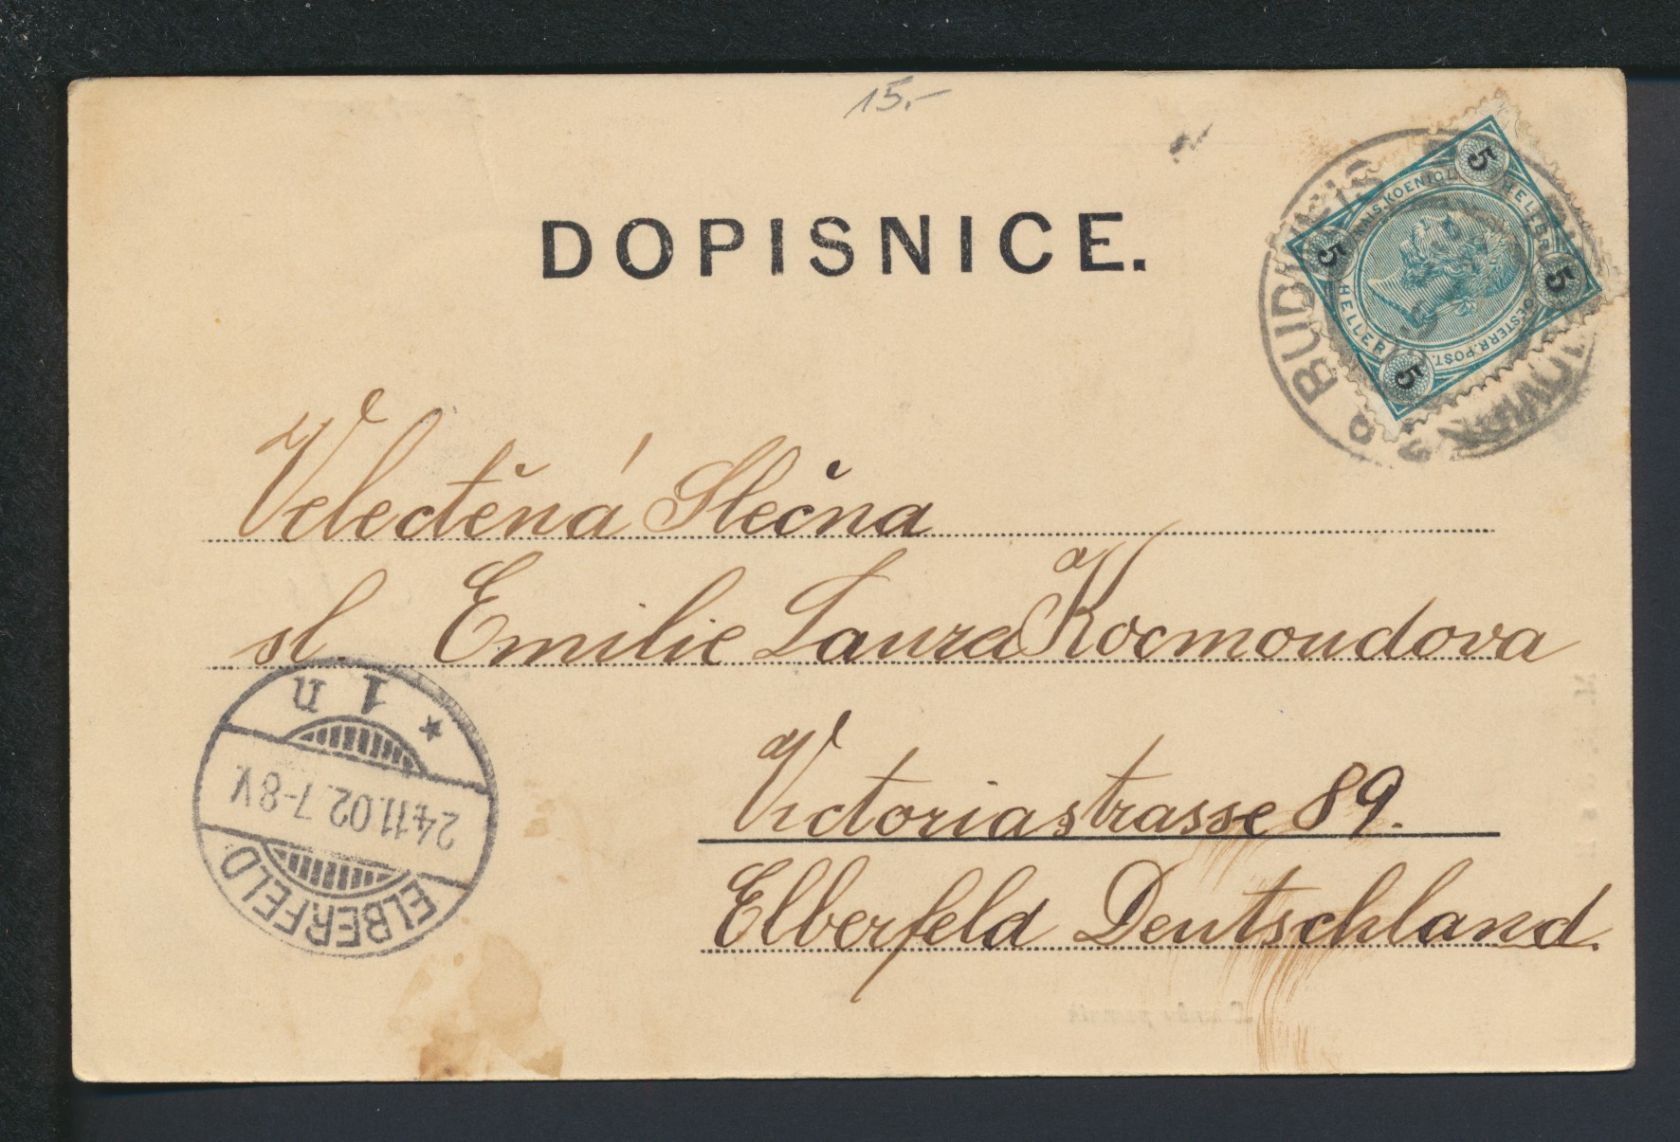 15.-
DOPISNICE.
5 5 5 5
KOENIGL
HELLER
OESTERR. POST.
HELLER
BUDWEIS
Velectěná Slečna
sl. Emilie Laura Kocmoudova
Victoriastrasse 89.
Elberfeld Deutschland.
ELBERFELD
24.11.02.7-8V.
* 1 n